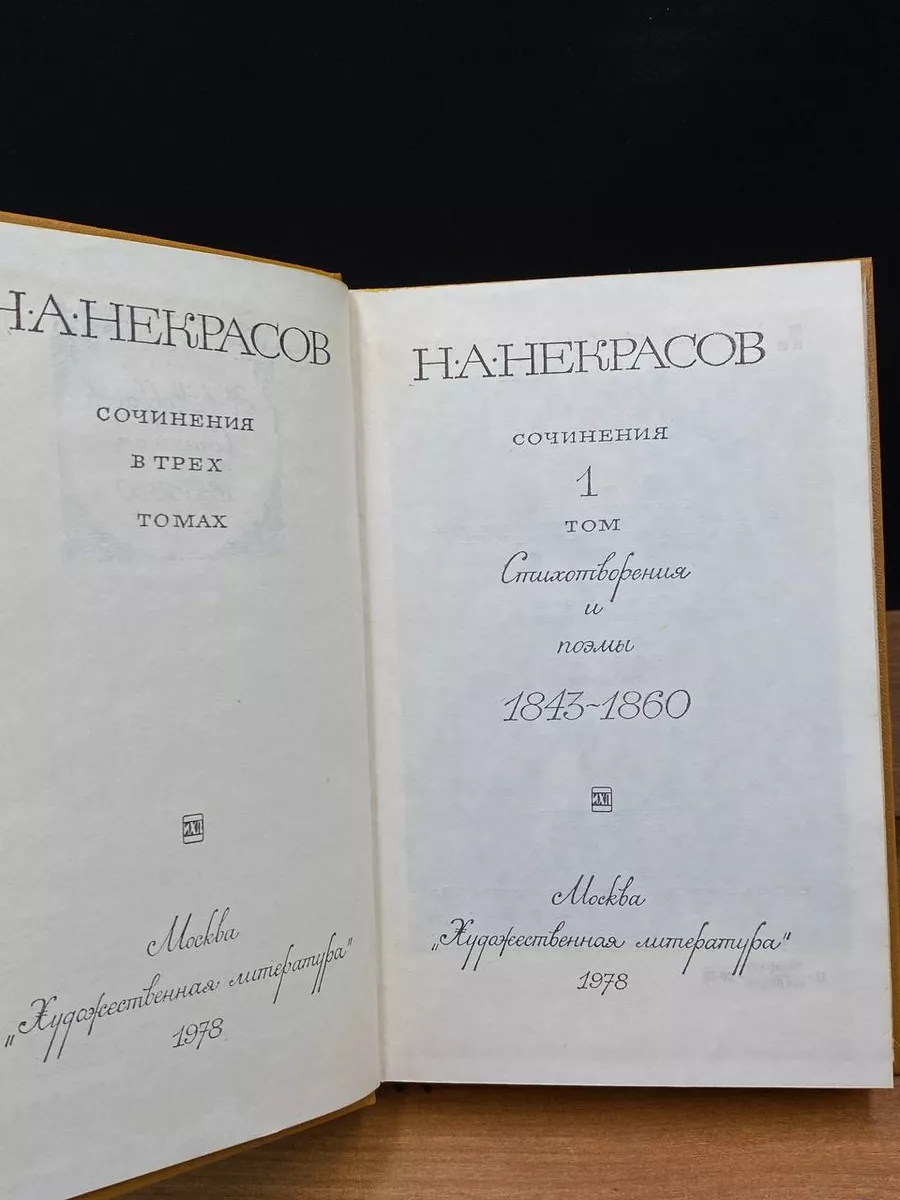 Н·А·НЕКРАСОВ
СОЧИНЕНИЯ
В ТРЕХ
ТОМАХ
ИХЛ
Москва
„Художественная литература"
1978
Н·А·НЕКРАСОВ
СОЧИНЕНИЯ
1
ТОМ
Стихотворения
и
поэмы
1843~1860
ИХЛ
Москва
„Художественная литература"
1978